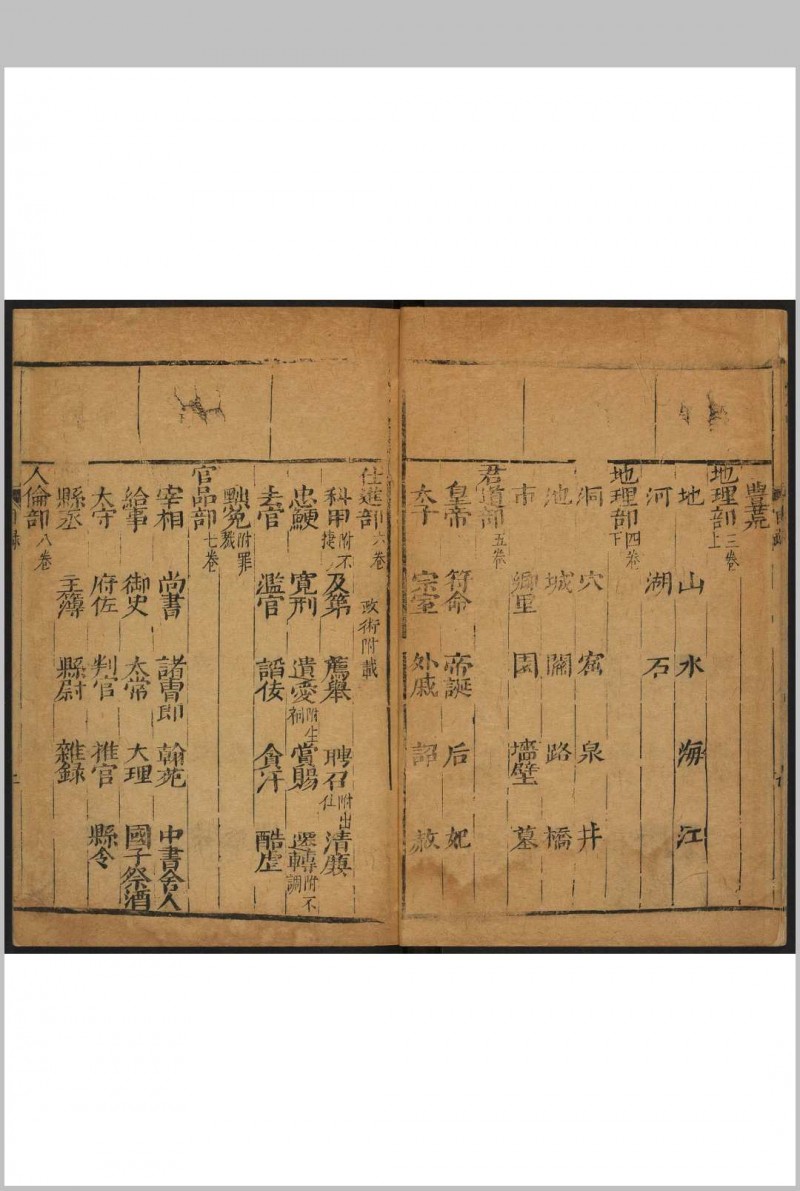 豊荒
地理部三卷上
地 山 水 海 江
河 湖 石
地理部四卷下
洞 穴 窟 泉 井
池 城 關 路 橋
市 鄉里 園 墻壁 墓
君道部五卷
皇帝 符命 帝誕 后 妃
太子 宗室 外戚 詔 赦
仕進部六卷 政術附載
科甲附不捷 及第 薦舉 聘召附出仕 清廉
忠鯁 寬刑 遺愛附生祠 賞賜 遷轉附不調
去官 濫官 諂佞 貪汗 酷虐
黜免附罪戮
官品部七卷
宰相 尚書 諸曹郎 翰苑 中書舍人
給事 御史 太常 大理 國子祭酒
大守 府佐 判官 推官 縣令
縣丞 主簿 縣尉 雜録
人倫部八卷